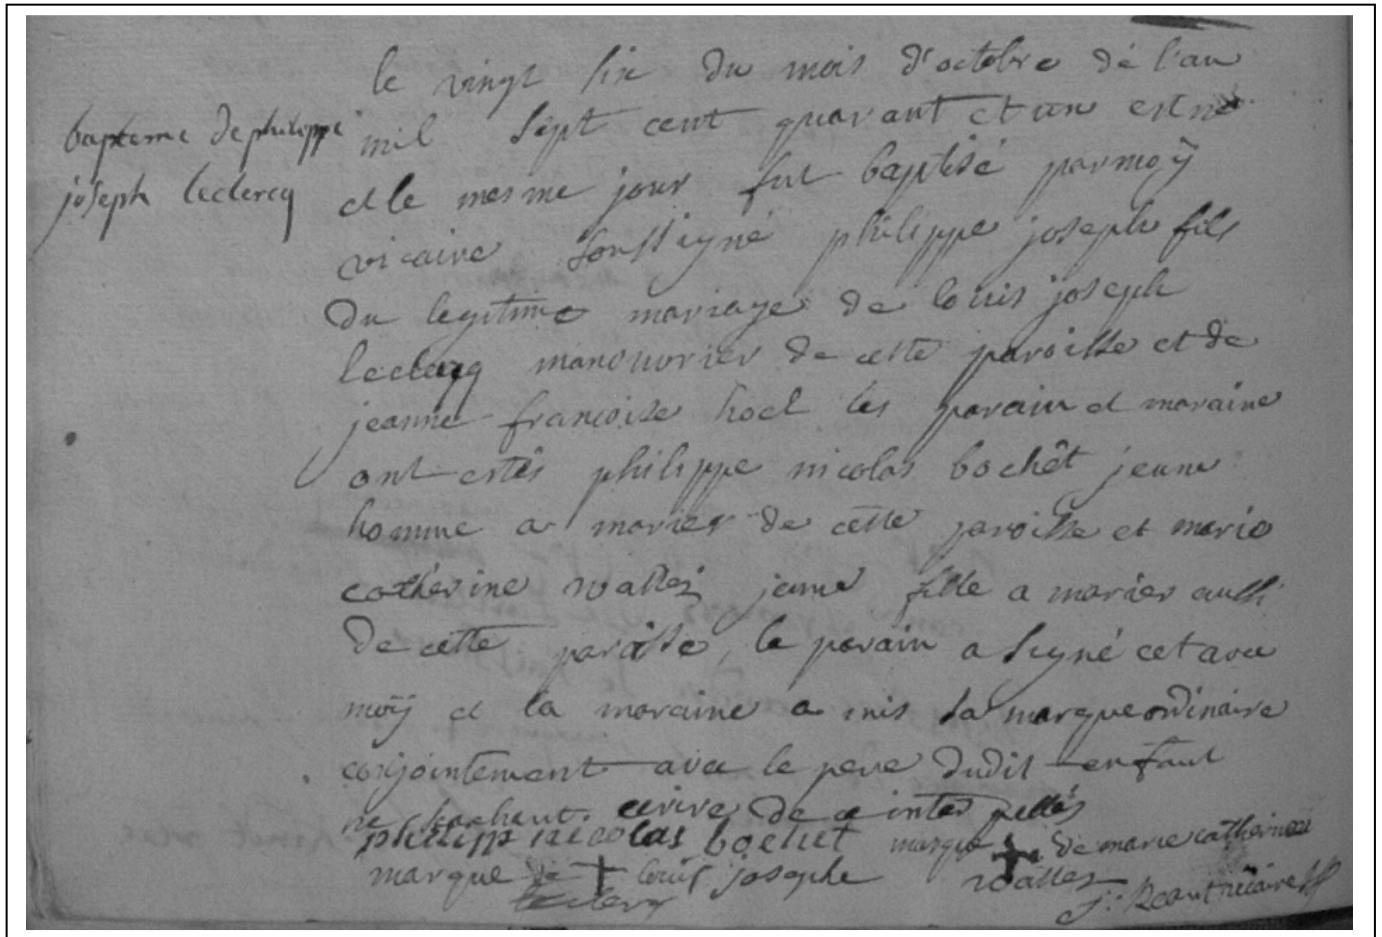 le vingt six du mois d'octobre de l'an
bapteme de philippe
mil sept cent quarant et un est né
joseph leclercq
et le mesme jour fut baptisé par moÿ
vicaire soussigné philippe joseph fils
du legitime mariage de louis joseph
leclercq manouvrier de cette paroisse et de
jeanne francoise hoel les parain et maraine
ont estés philippe nicolas bochêt jeune
homme a marier de cette paroisse et marie
catherine wallez jeune fille a marier aussi
de cette paroisse, le parain a signé cet avec
moÿ et la maraine a mis sa marque ordinaire
conjointement avec le pere dudit enfant
ne sachant ecrire de ce interpellés
philipp nicolas bochet marque de marie catherine
marque de louis joseph wallez
leclercq